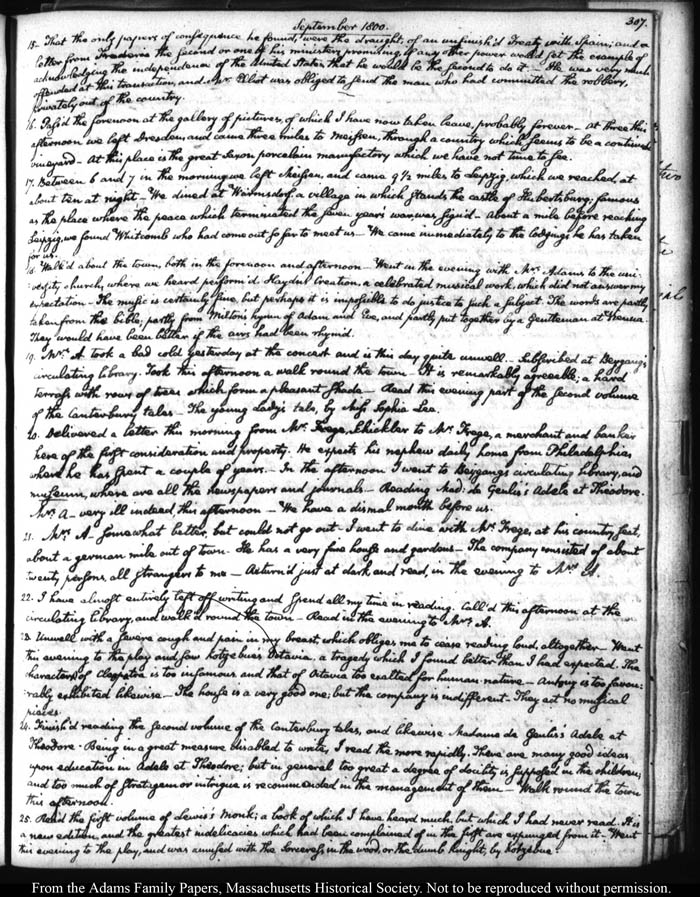 September 1800.
307.
15. That the only papers of consequence he found, were the draught, of an unfinish'd Treaty with Spain; and a
letter from Frederic the Second or one of his ministers promising, if any other power would set the example of
acknowledging the independence of the United States, that he would be the second to do it. — He was very much
offended at this transaction, and Mr. Elliot was obliged to send the man who had committed the robbery,
privately out of the country.
16. Pass'd the forenoon at the gallery of pictures, of which I have now taken leave, probably forever — At three this
afternoon we left Dresden, and came three miles to Meissen, through a country which seems to be a continued
vineyard — At this place is the great Saxon porcelain manufactory which we have not time to see.
17. Between 6 and 7 in the morning we left Meissen, and came 9 1/2 miles to Leipzig, which we reached at
about ten at night — We dined at Wermsdorf, a village in which stands the castle of Hubertsburg; famous
as the place where the peace which terminated the seven years war was sign'd — About a mile before reaching
Leipzig, we found Whitcomb who had come out so far to meet us — We came immediately to the lodgings he has taken
for us.
18. Walk'd about the town, both in the forenoon and afternoon — Went in the evening with Mrs. Adams to the uni-
versity church, where we heard perform'd Haydn's Creation, a celebrated musical work, which did not answer my
expectation — The music is certainly fine, but perhaps it is impossible to do justice to such a subject. The words are partly
taken from the bible, partly from Milton's hymn of Adam and Eve, and partly put together by a gentleman at Vienna.
They would have been better if the airs had been rhym'd.
19. Mrs. A. took a bad cold yesterday at the concert and is this day quite unwell. Subscribed at Beygang's
circulating library. Took this afternoon a walk round the town — It is remarkably agreeable; a hard
terrass with rows of trees which form a pleasant shade — Read this evening part of the second volume
of the Canterbury tales — The young Lady's tale, by Miss Sophia Lee.
20. Delivered a letter this morning from Mr. Frege, Schickler to Mr. Frege, a merchant and banker
here of the first consideration and property. He expects his nephew daily home from Philadelphia
where he has spent a couple of years. — In the afternoon I went to Beygang's circulating library, and
museum, where are all the newspapers and journals — Reading Mad: de Genlis's Adele et Theodore.
Mrs. A — very ill indeed, this afternoon — We have a dismal month before us.
21. Mrs. A — somewhat better, but could not go out — I went to dine with Mr. Frege, at his country seat,
about a german mile out of town. He has a very fine house and gardens — The company consisted of about
twenty persons, all strangers to me — Return'd just at dark and read, in the evening to Mrs. A.
22. I have almost entirely left off writing and spend all my time in reading. Call'd this afternoon at the
circulating library, and walk'd round the town — Read in the evening to Mrs. A.
23. Unwell with a severe cough and pain in my breast, which obliges me to cease reading loud, altogether — Went
this evening to the play and saw Kotzebue's Octavia, a tragedy which I found better than I had expected. The
character of Cleopatra is too infamous and that of Octavia too exalted for human nature — Antony is too favou-
rably exhibited likewise — The house is a very good one; but the company is indifferent — They act no musical
pieces.
24. Finish'd reading the second volume of the Canterbury tales, and likewise Madame de Genlis's Adele et
Theodore. Being in a great measure disabled to write, I read the more rapidly. There are many good ideas
upon education in Adele et Theodore; but in general too great a degree of docility is supposed in the children,
and too much of stratagem or intrigue is recommended in the management of them — Walk round the town
this afternoon.
25. Read the first volume of Lewis's Monk; a book of which I have heard much, but which I had never read. It is
a new edition, and the greatest indelicacies which had been complained of in the first are expunged from it. Went
this evening to the play, and was amused with the Sorceress in the wood, or the dumb Knight, by Kotzebue.
From the Adams Family Papers, Massachusetts Historical Society. Not to be reproduced without permission.